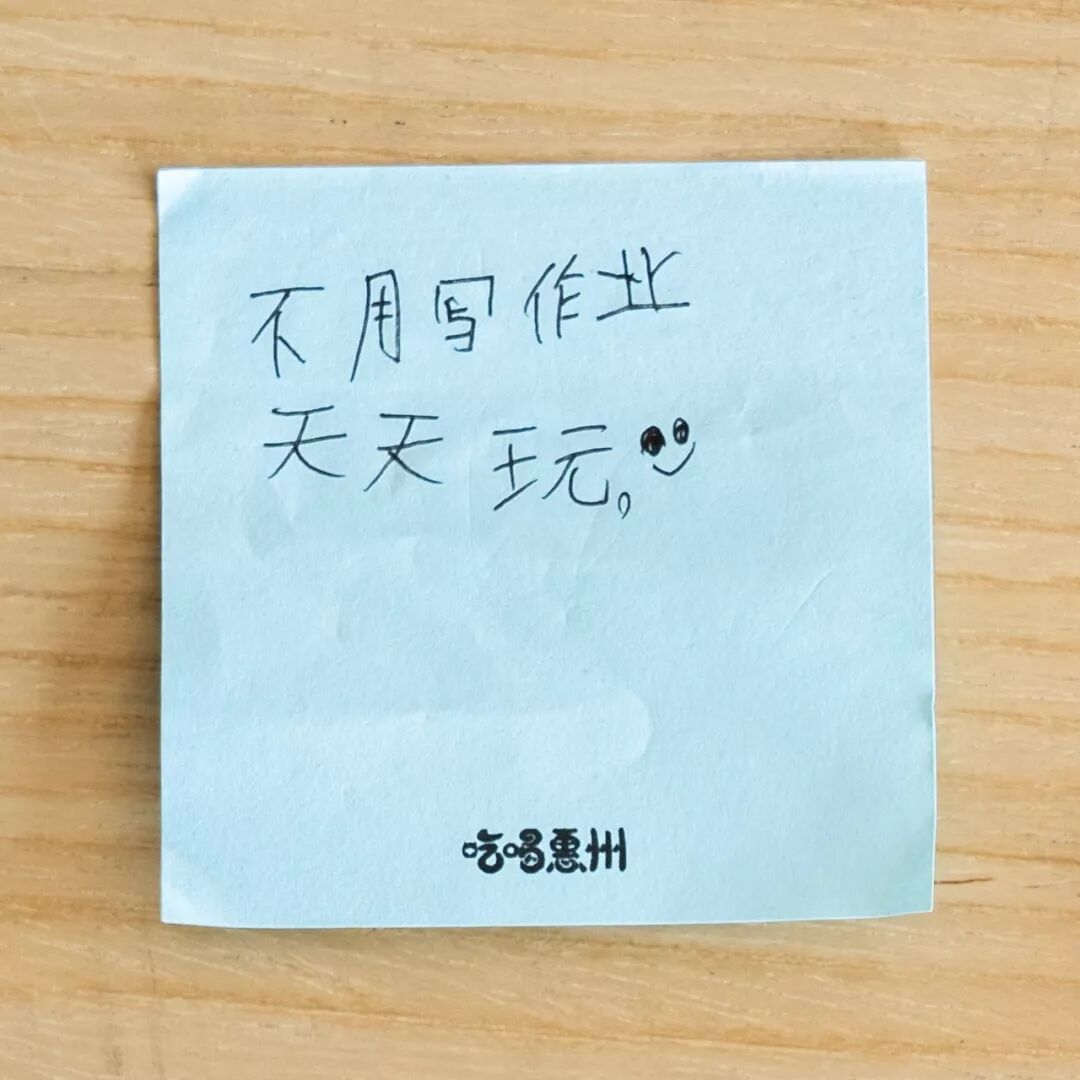 不用写作业
天天玩,
吃喝惠州